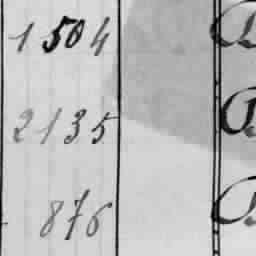 1504
2135
876